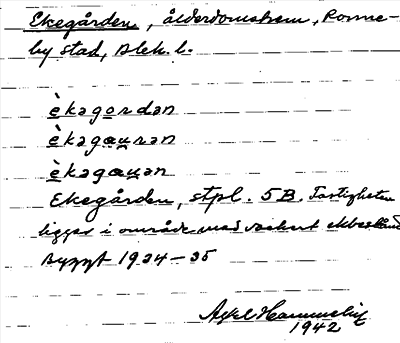 Ekegården, ålderdomshem, Ronne-
by stad, Blek. l.
èkagordan
èkagæuran
èkagæuan
Ekegården, stpl. 5B. Fastigheten
ligger i område med vackert ekbestånd
Byggt 1934–35
Axel Hammelin
1942